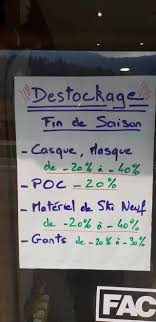 Destockage
Fin de Saison
- Casque, Masque
de -20% à -40%
- POC - 20%
- Matériel de Ski Neuf
de -20% à -40%
- Gants de -20% à -30%
FAC